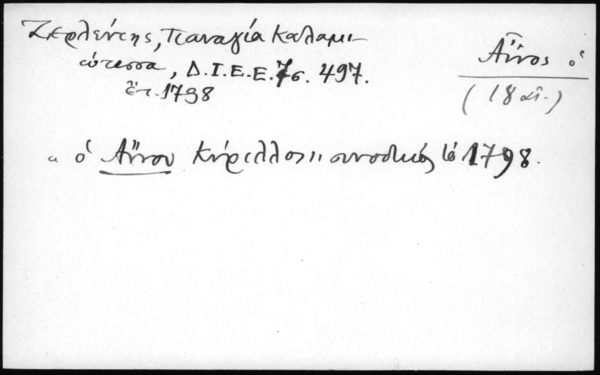 Ζερλέντης, Παναγία Καλαμι-
ώτισσα, Δ.Ι.Ε.Ε. 7 σ. 497.
ἔτ. 1798
Αἶνος ὁ
(18 αἰ.)
"ὁ Αἴνου Κύριλλος" συνοδικός τῷ 1798.